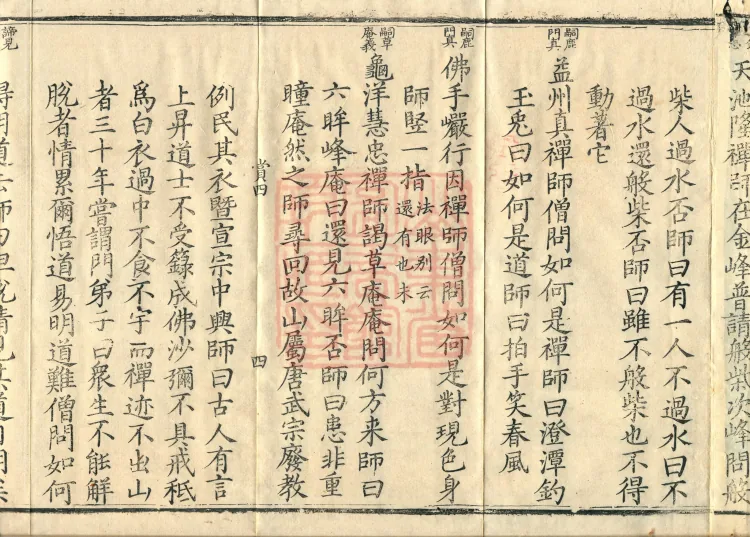 天池隆禪師在金峰普請般柴次峰問般
柴人過水否師曰有一人不過水曰不
過水還般柴否師曰雖不般柴也不得
動著它
嗣鹿門真
益州真禪師僧問如何是禪師曰澄潭釣
玉兎曰如何是道師曰拍手笑春風
嗣鹿門真
佛手巖行因禪師僧問如何是對現色身
師竪一指法眼別云還有也未
嗣草庵義
龜洋慧忠禪師謁草庵庵問何方来師曰
六眸峰庵曰還見六眸否師曰患非重
瞳庵然之師尋回故山屬唐武宗廢教
賞四
四
例民其衣暨宣宗中興師曰古人有言
上昇道士不受籙成佛沙彌不具戒秪
爲白衣過中不食不宇而禪迹不出山
者三十年嘗謂門弟子曰衆生不能解
脫者情累爾悟道易明道難僧問如何
諦見